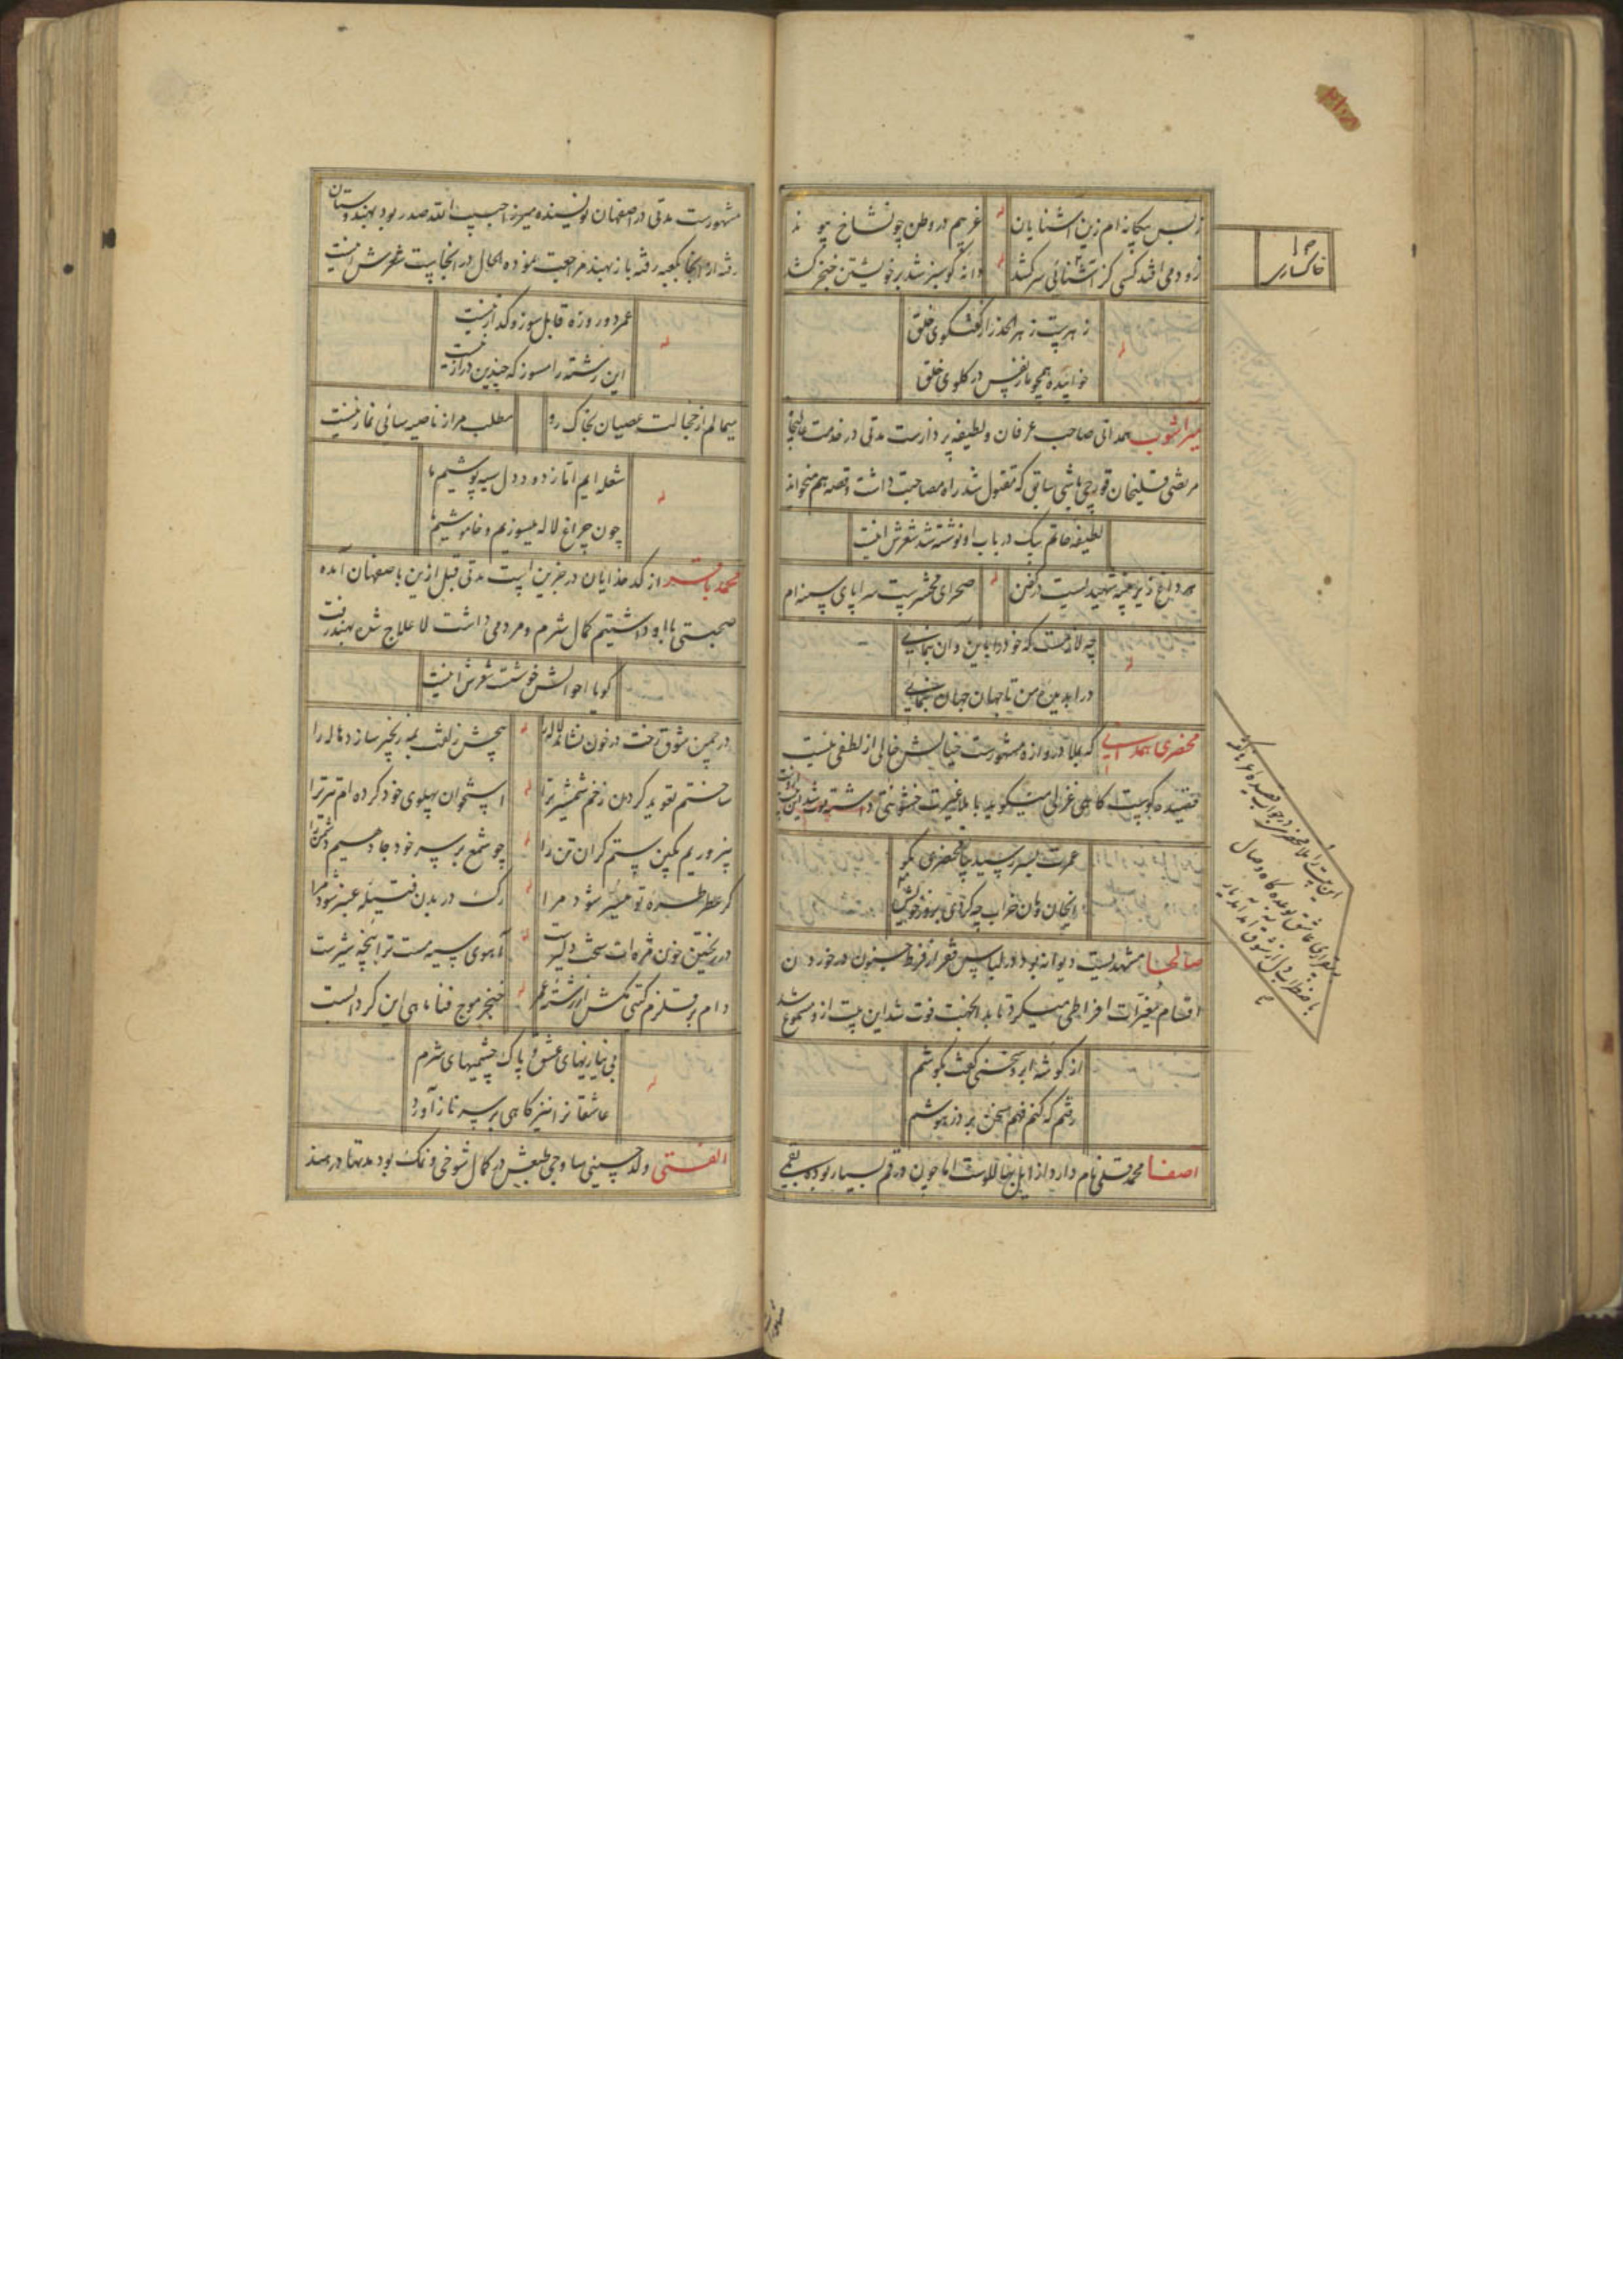 ز بس بیگانه‌ام زین آشنایان غریبم در وطن چون شاخ پیوند
زود می افتد کسی کز آشنائی سر کشد دانه کو سبز شد بر خویشتن خنجر کشد
خاکساری
زهریست زهر الحذر از گفتگوی خلق
خوابیده همچو مار نفس در گلوی خلق
میر آشوب همدانی صاحب عرفان و لطیفه پردازست مدتی در خدمت عالیجاه
مرتضی قلیخان قورچی باشی سابق که مقتول شد راه مصاحبت داشت و قصه هم میخواند
لطیفه حاتم بیک در باب او نوشته شد شعرش اینست
هر داغ زیر پنبه شهیدیست در کفن صحرای محشریست سراپای سینه ام
چه لازمست که خود را باین و آن بنمایی
درا بدیده من تا جهان جهان بنمایی
محضری همدانی که بملا دروازه مشهورست خیالش خالی از لطفی نیست
قصیده گوست گاهی غزلی میگوید با ملا غیرت خشونتی داشته
عمرت بسر رسید بیا محضری بگو
صالحا مشهدیست دیوانه بود در لباس فقر از فرط جنون در خوردن
اقسام مغیرات افراطی میکرد تا بدانجهت فوت شد این بیت ازو مسموع شد
از گوشه ابرو سخنی گفت بگوشم
رفتم که کنم فهم سخن برد ز هوشم
اصفا محمد قلی نام دارد از ایل خنا للوست اما چون در قم بسیار بوده بقمی
مشهورست مدتی در اصفهان نویسنده میرزا حبیب الله صدر بود بهندوستان
رفته از آنجا بکعبه رفته باز بهند مراجعت نموده الحال در آنجاست شعرش اینست
عمر دو روزه قابل سوز و گداز نیست
این رشته را مسوز که چندین دراز نیست
میمالم از خجالت عصیان بخاک رو مطلب مرا ز ناصیه سائی نماز نیست
شعله ایم اما ز دود دل سیه پوشیم ما
چون چراغ لاله میسوزیم و خاموشیم ما
محمد باقر از کدخدایان در جزین است مدتی قبل ازین باصفهان آمده
صحبتی با او داشتیم کمال شرم و مردمی داشت لا علاج شده بهند رفت
گویا احوالش خوشست شعرش اینست
در چمن شوق رخت در خون نشاند لاله را پیچش زلفت به زنجیر سازد هاله را
ساختم تعوید گردن زخم شمشیر ترا استخوان پهلوی خود کرده ام تیر ترا
بپروریم بکین ستم گران تن را چو شمع بر سر خود جا دهیم دشمن را
گر عطر طره تو میسر شود مرا رگ در بدن فتیله عنبر شود مرا
در ریختن خون مژه ات سخت دلیرست آهوی سیه مست ترا پنجه شیرست
دام بر قلزم گیتی مکش از رشته عمر خنجر موج فنا ماهی این گردابست
بی نیازیهای عشق و پاک چشمیهای شرم
عاشقانرا نیز گاهی بر سر ناز آورد
الفتی ولد حسینی ساوجی طبعش در کمال شوخی و نمک بود مدتها در هند